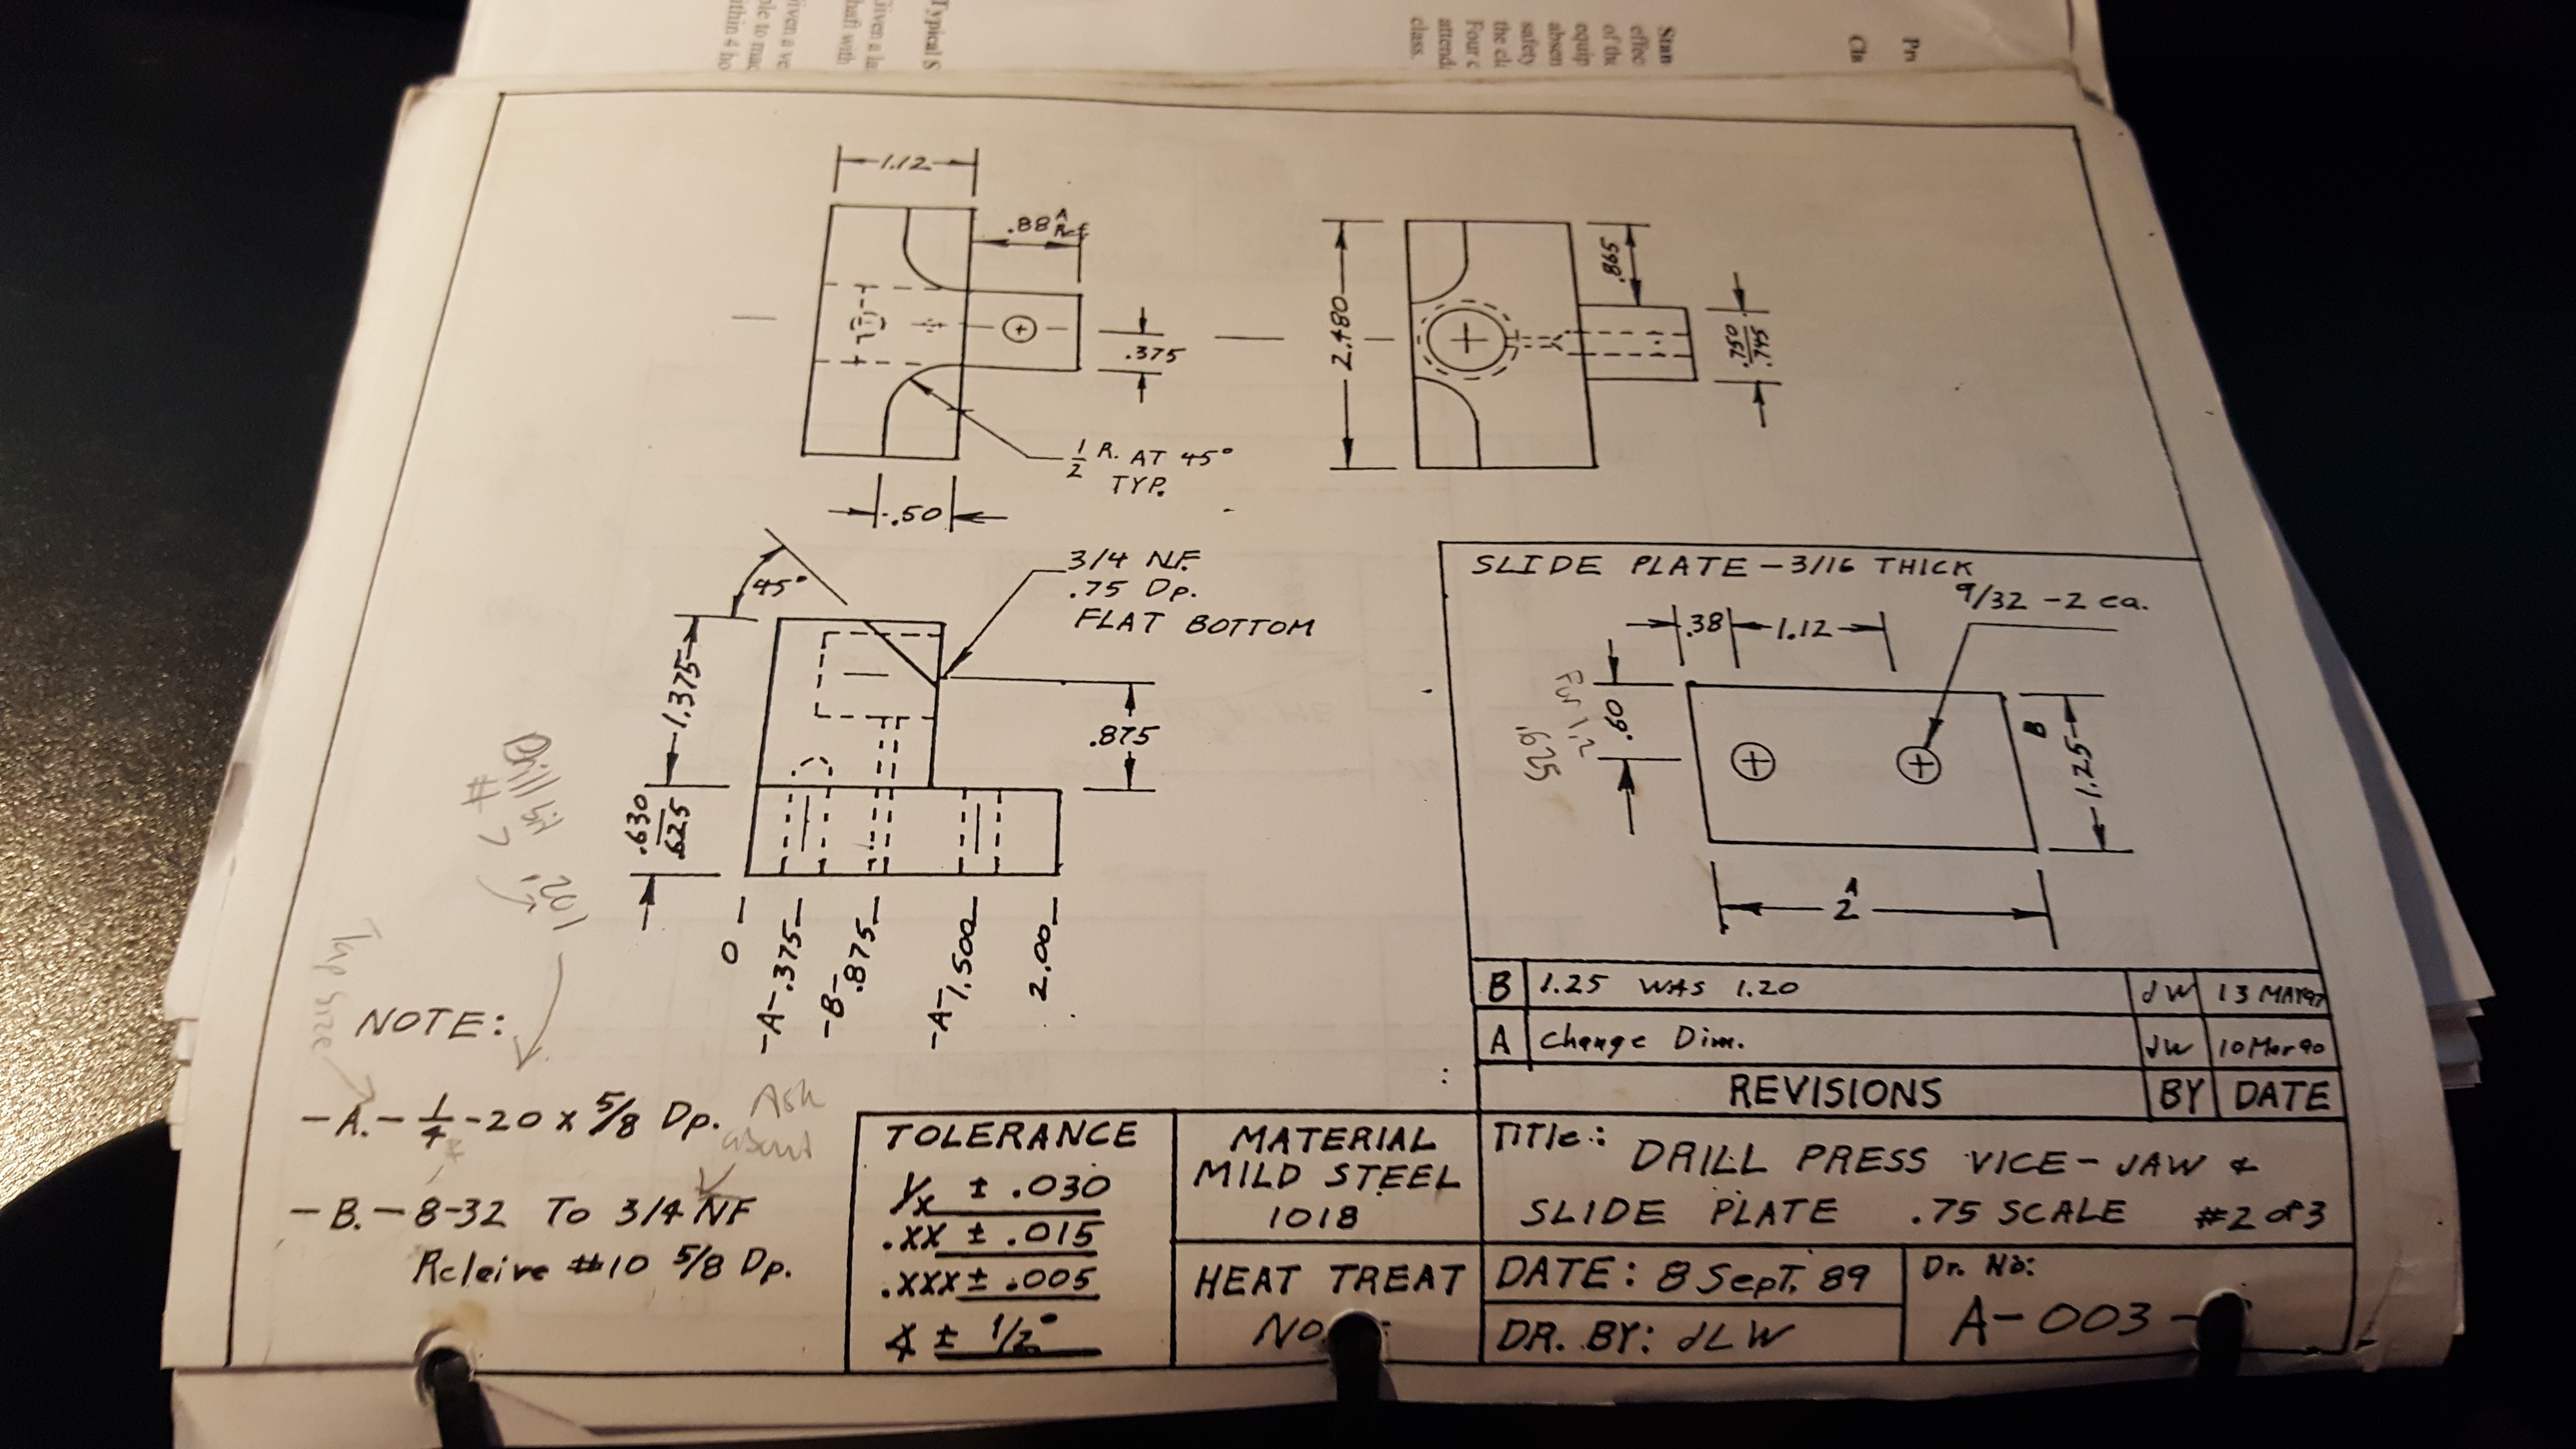 Typical S
Given a la
haft with
iven a ve
ble to mac
ithin 4 ho
Stan
effec
of the
equip
absen
safety
the cla
Four c
attend
class.
Cla
Pr
1.12
.88 A Ref
.375
1/2 R. AT 45°
TYP.
.50
2.480
.865
.750
.745
45°
3/4 NF.
.75 Dp.
FLAT BOTTOM
1.375
.875
.630
.625
0
-A- .375
-B- .875
-A- 1.500
2.00
SLIDE PLATE - 3/16 THICK
9/32 - 2 ca.
.38
1.12
.60
.625
B
1.25
A
2
Drill bit
# 7
.201
Tap size
NOTE:
-A.- 1/4 -20 x 5/8 Dp.
Ask
about
-B.- 8-32 To 3/4 NF
Releive #10 5/8 Dp.
TOLERANCE
1/x ± .030
.xx ± .015
.xxx ± .005
∡ ± 1/2°
MATERIAL
MILD STEEL
1018
HEAT TREAT
B 1.25 WAS 1.20 JW 13 MAY97
A Change Dim. JW 10 Mar 90
REVISIONS BY DATE
Title: DRILL PRESS VICE-JAW &
SLIDE PLATE .75 SCALE #2 of 3
DATE: 8 SepT. 89
DR. BY: JLW
Dr. No:
A-003-